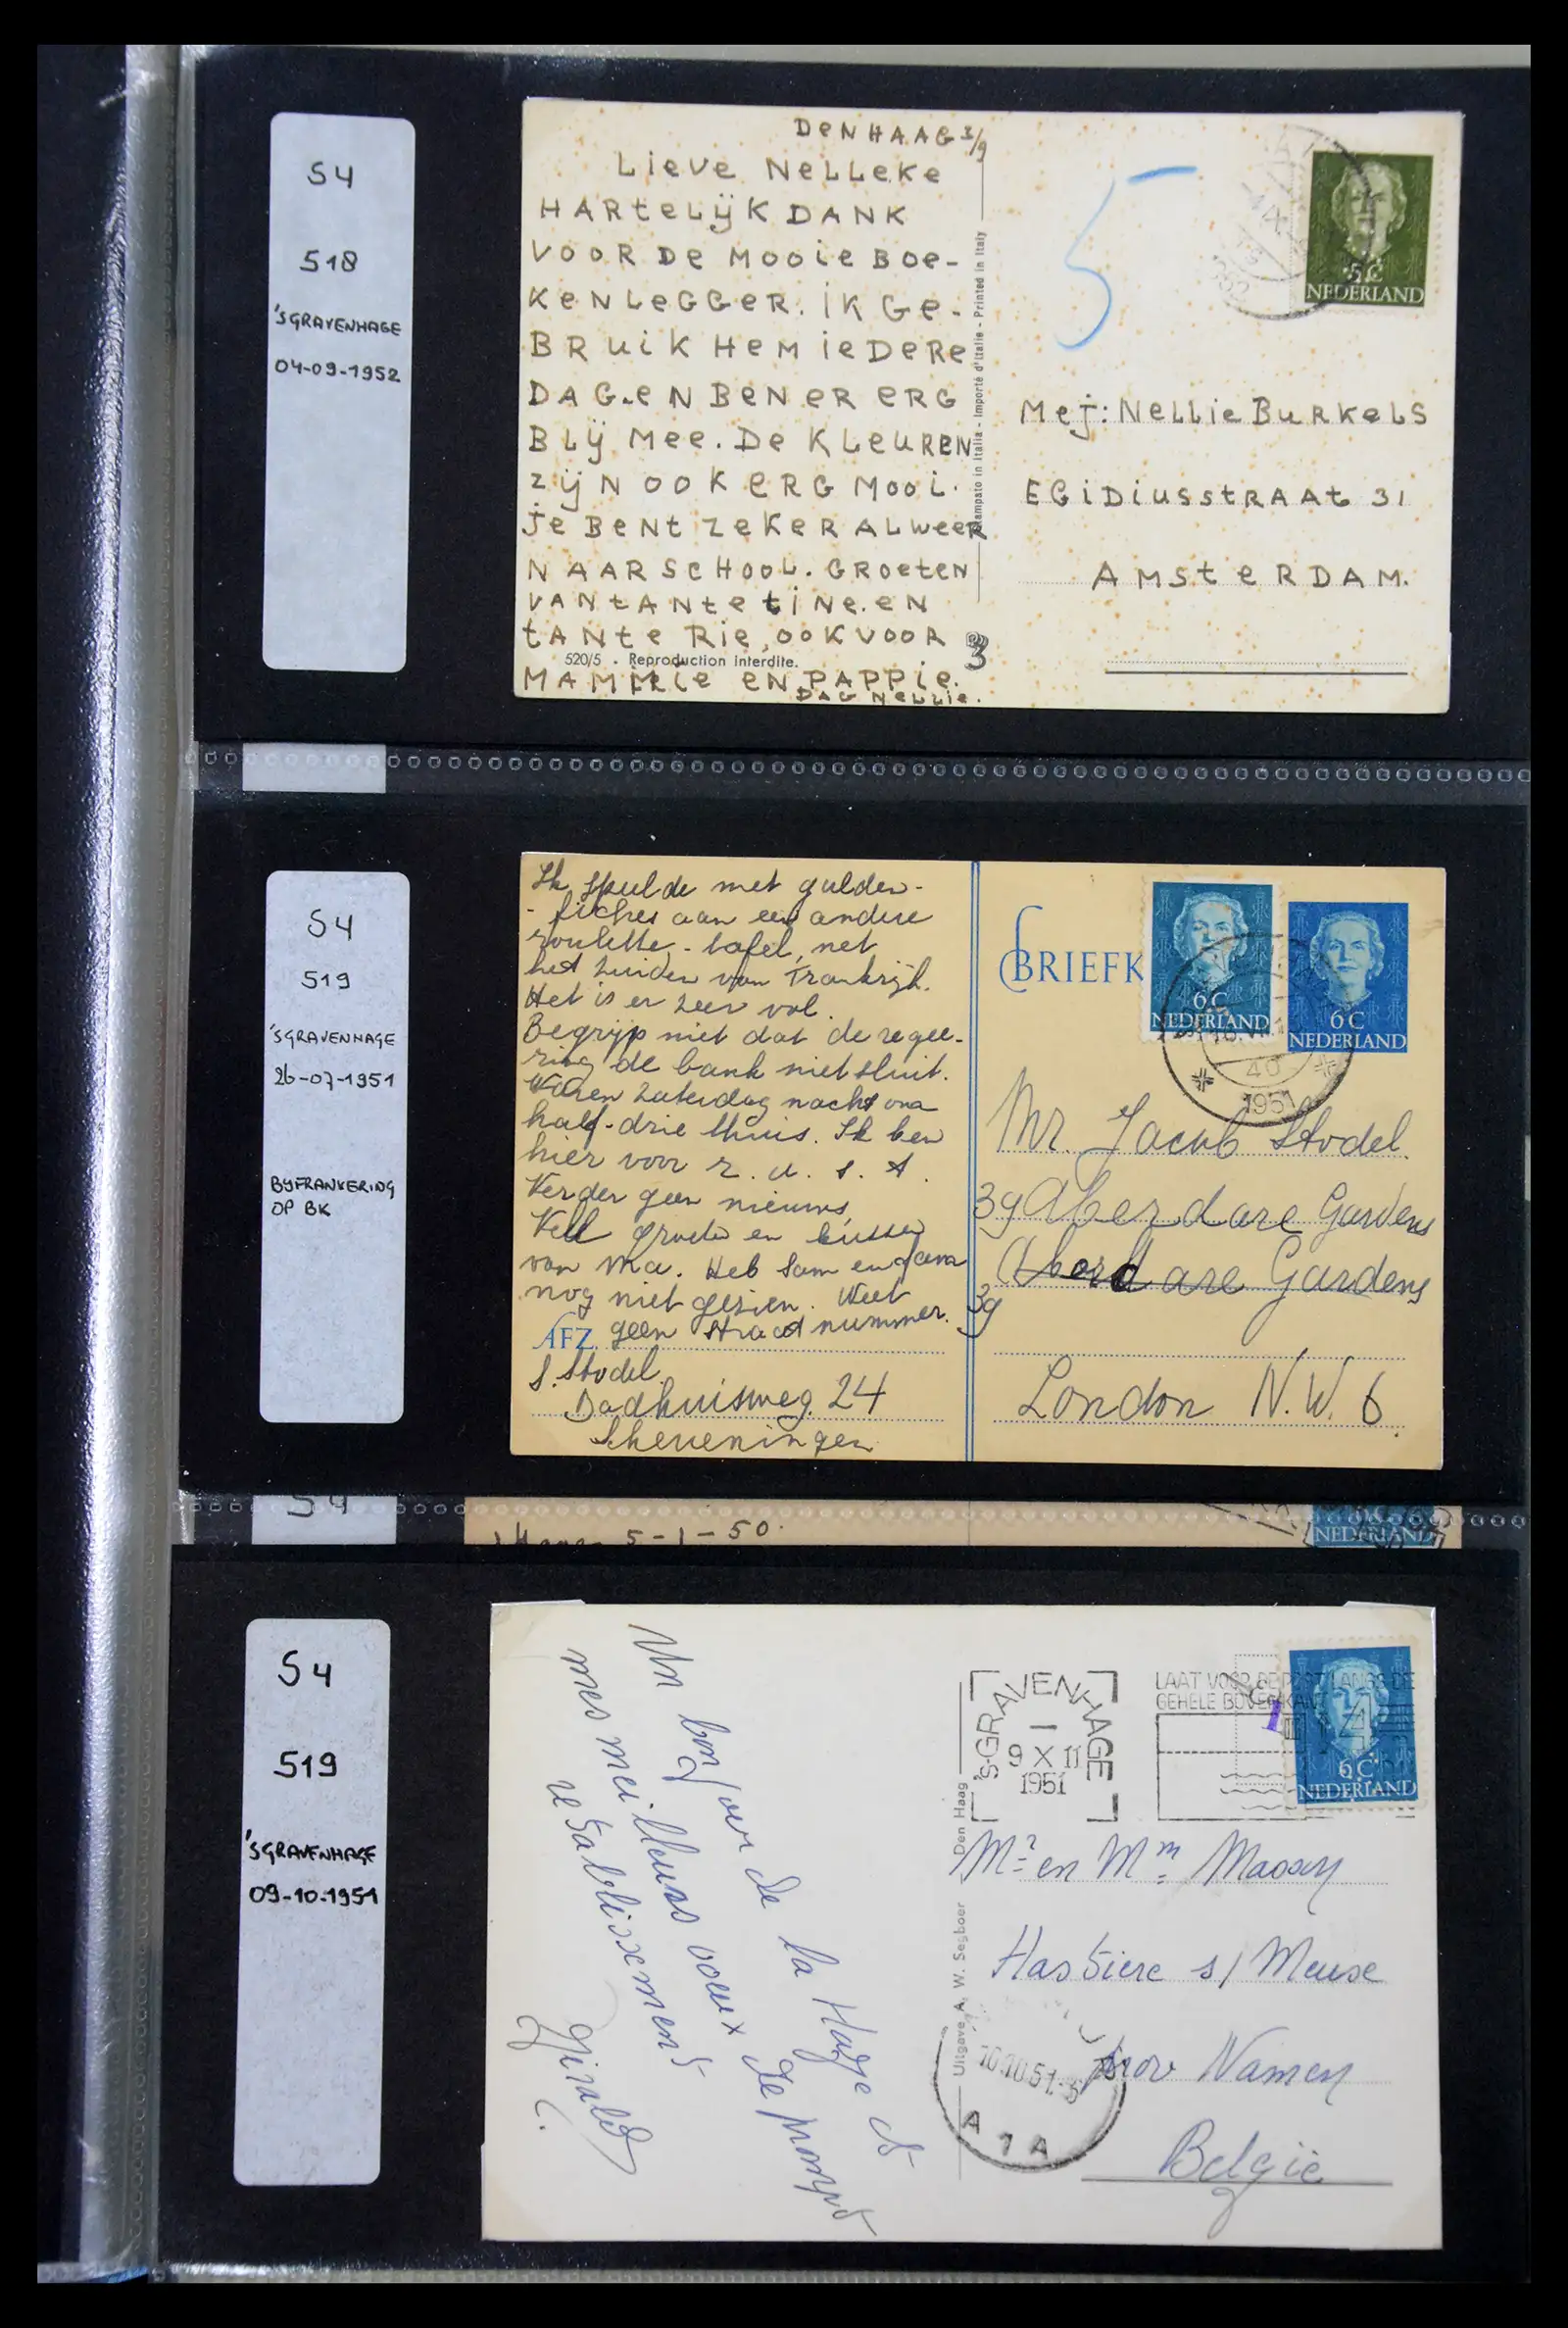 S4
518
'SGRAVENHAGE
04-09-1952
DEN HAAG 3/9
LIEVE NELLEKE
HARTELIJK DANK
VOOR DE MOOIE BOE-
KENLEGGER. IK GE-
BRUIK HEM IEDERE
DAG. EN BEN ER ERG
BLIJ MEE. DE KLEUREN
ZIJN OOK ERG MOOI.
JE BENT ZEKER ALWEER
NAAR SCHOOL. GROETEN
VAN TANTE TINE. EN
TANTE RIE, OOK VOOR
520/5 . Reproduction interdite.
MAMMIE EN PAPPIE.
DAG NELLIE.
Stampato in Italia - Importé d'Italie - Printed in Italy
3
5
5C
NEDERLAND
Mej: NELLIE BURKELS
EGIDIUSSTRAAT 31
AMSTERDAM.
S4
519
'SGRAVENHAGE
26-07-1951
BYFRANKERING
OP BK
Ik speelde met gulden-
- fiches aan een andere
roulette - tafel, net
het zuiden van Frankrijk.
Het is er zeer vol.
Begrijp niet dat de regee-
ring de bank niet sluit.
Waren Zaterdag nacht om
half-drie thuis. Ik ben
hier voor z. u. s. A.
Verder geen nieuws,
Veel groeten en kussen
van Ma. Heb Sam en
nog niet gezien. Weet
geen straat nummer.
AFZ.
S. Stodel.
Badhuisweg 24
Scheveningen
BRIEFK
6C
NEDERLAND
6C
NEDERLAND
40
1951
Mr. Jacob Stodel.
39 Aberdare Gardens
Aberdare Gardens
39
London N.W. 6
S4
5-1-50.
NEDERLAND
S4
519
'SGRAVENHAGE
09-10-1951
Un bonjour de la Haye et
mes meilleurs voeux de prompt
retablissement
Uitgave A. W. Segboer Den Haag
'S-GRAVENHAGE
9 X 11
1951
LAAT VOOR DE POST LANGS DE
GEHELE BOVENKANT
6C
NEDERLAND
Mr en Mm
Hastiere s/ Meuse
prov Namen
België
10.10.51.
A 1 A